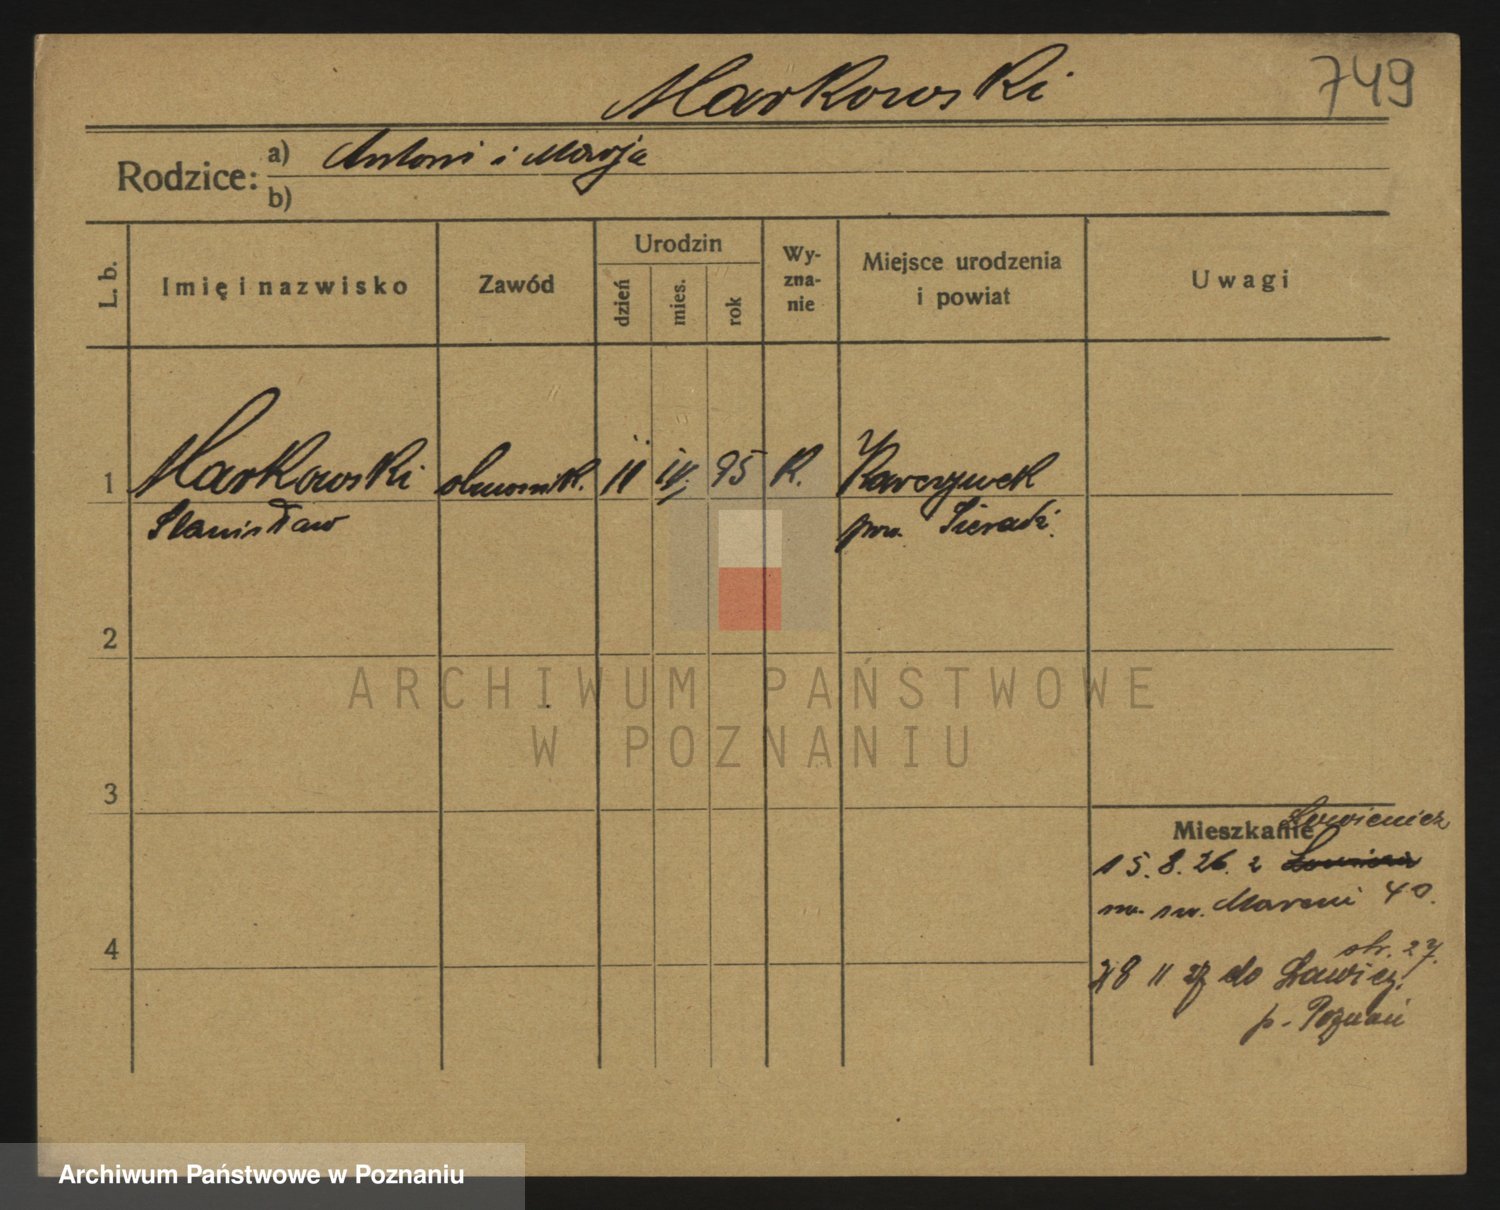 Markowski
749
Rodzice:
a) Antoni i Marja
b)
L. b.
Imię i nazwisko
Zawód
Urodzin
dzień
mies.
rok
Wy-
zna-
nie
Miejsce urodzenia
i powiat
Uwagi
1 Markowski 11 IV. 95 K. Karczywek
Stanisław pow. Sieradz.
2
3
4
Mieszkanie
15.8.26. z
na św. Marcin 40.
str. 27.
28 11 27 do Ławicy.
p. Poznań
ARCHIWUM PAŃSTWOWE
W POZNANIU
Archiwum Państwowe w Poznaniu